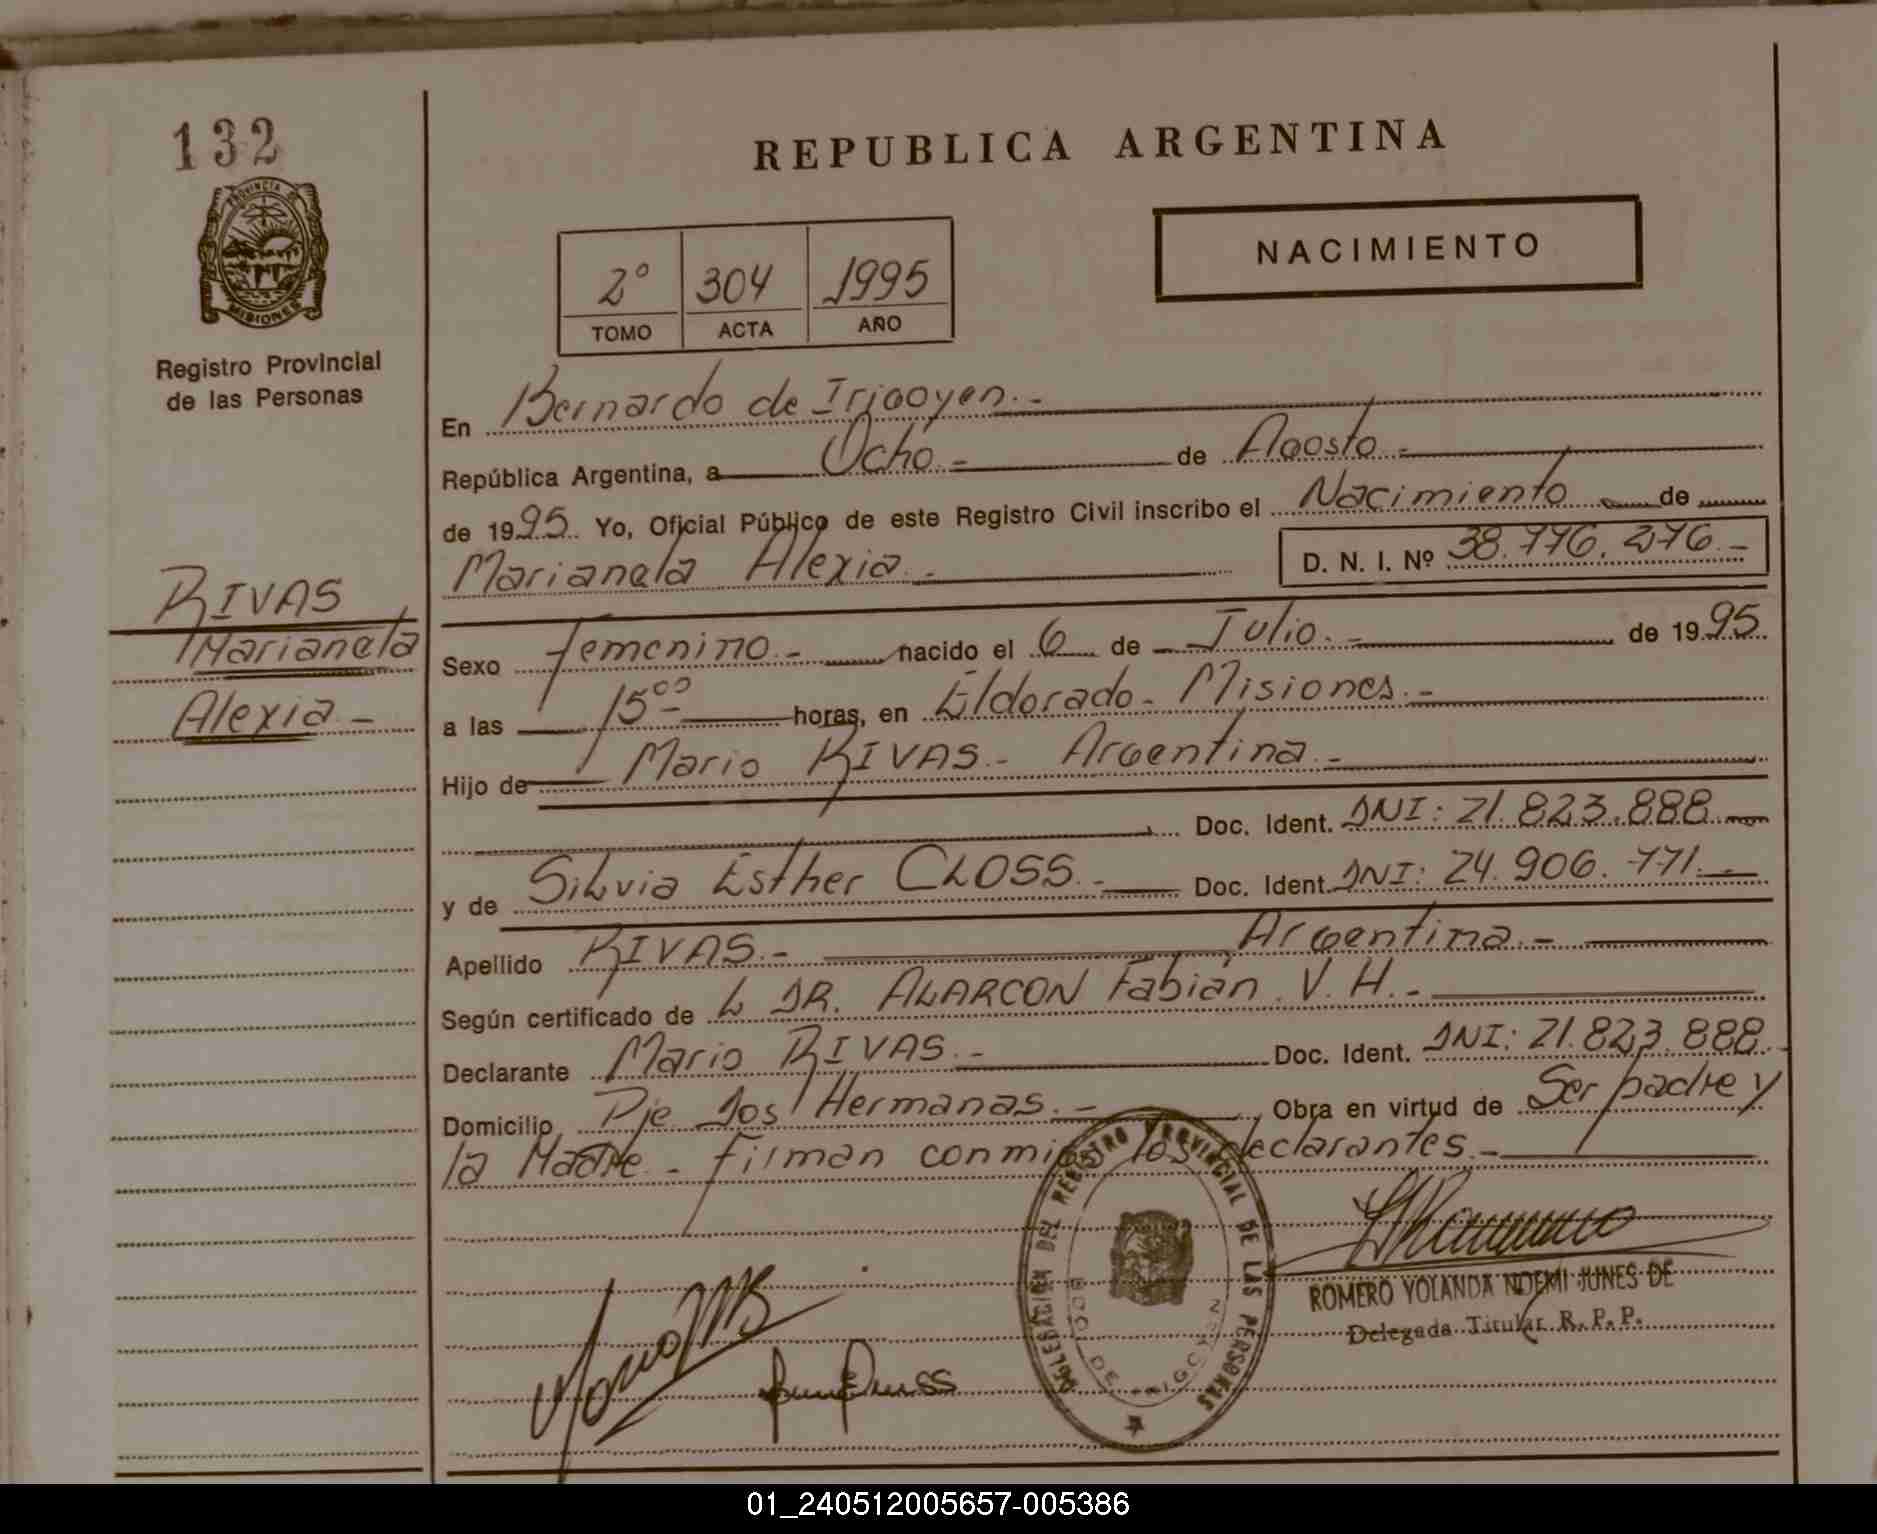 132
PROVINCIA DE
MISIONES
Registro Provincial
de las Personas
RIVAS
Marianela
Alexia.-
REPUBLICA ARGENTINA
NACIMIENTO
2º 304 1995
TOMO ACTA AÑO
En Bernardo de Irigoyen.-
República Argentina, a Ocho.- de Agosto.-
de 1995. Yo, Oficial Público de este Registro Civil inscribo el Nacimiento de
Marianela Alexia.- D. N. I. Nº 38.776.276.-
Sexo femenino.- nacido el 6 de Julio.- de 1995.
a las 15⁰⁰ horas, en Eldorado- Misiones.-
Hijo de Mario RIVAS.- Argentina.-
Doc. Ident. DNI: 21.823.888.
y de Silvia Esther CLOSS.- Doc. Ident. DNI: 24.906.771.-
Apellido RIVAS.- Argentina.-
Según certificado de L DR. ALARCON Fabián V. H.-
Declarante Mario RIVAS.- Doc. Ident. DNI: 21.823.888.-
Domicilio Pje Dos Hermanas.- Obra en virtud de Ser padre y
la Madre - firman conmigo los declarantes.-
DELEGACION DEL REGISTRO PROVINCIAL DE LAS PERSONAS
BDO. DE IRIGOYEN
ROMERO YOLANDA NOEMI JUNES DE
Delegada Titular R. P. P.
01_240512005657-005386